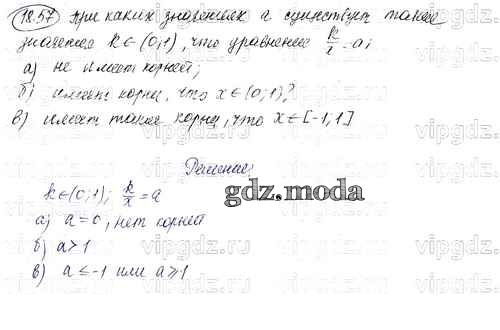 18.57 при каких значениях a существует такое
значение k∈(0;1), что уравнение k/x = a;
а) не имеет корней;
б) имеет корни, что x∈(0;1)?
в) имеет такие корни, что x∈[-1,1]
Решение:
k∈(0;1); k/x = a
gdz.moda
а) a=0, нет корней
б) a>1
в) a≤-1 или a≥1